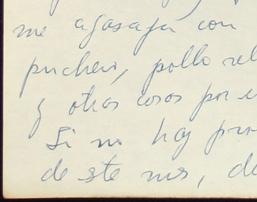 me agasaja con
puchero, pollo rel
y otras cosas por e
Si no hay pro
de ste mes, de